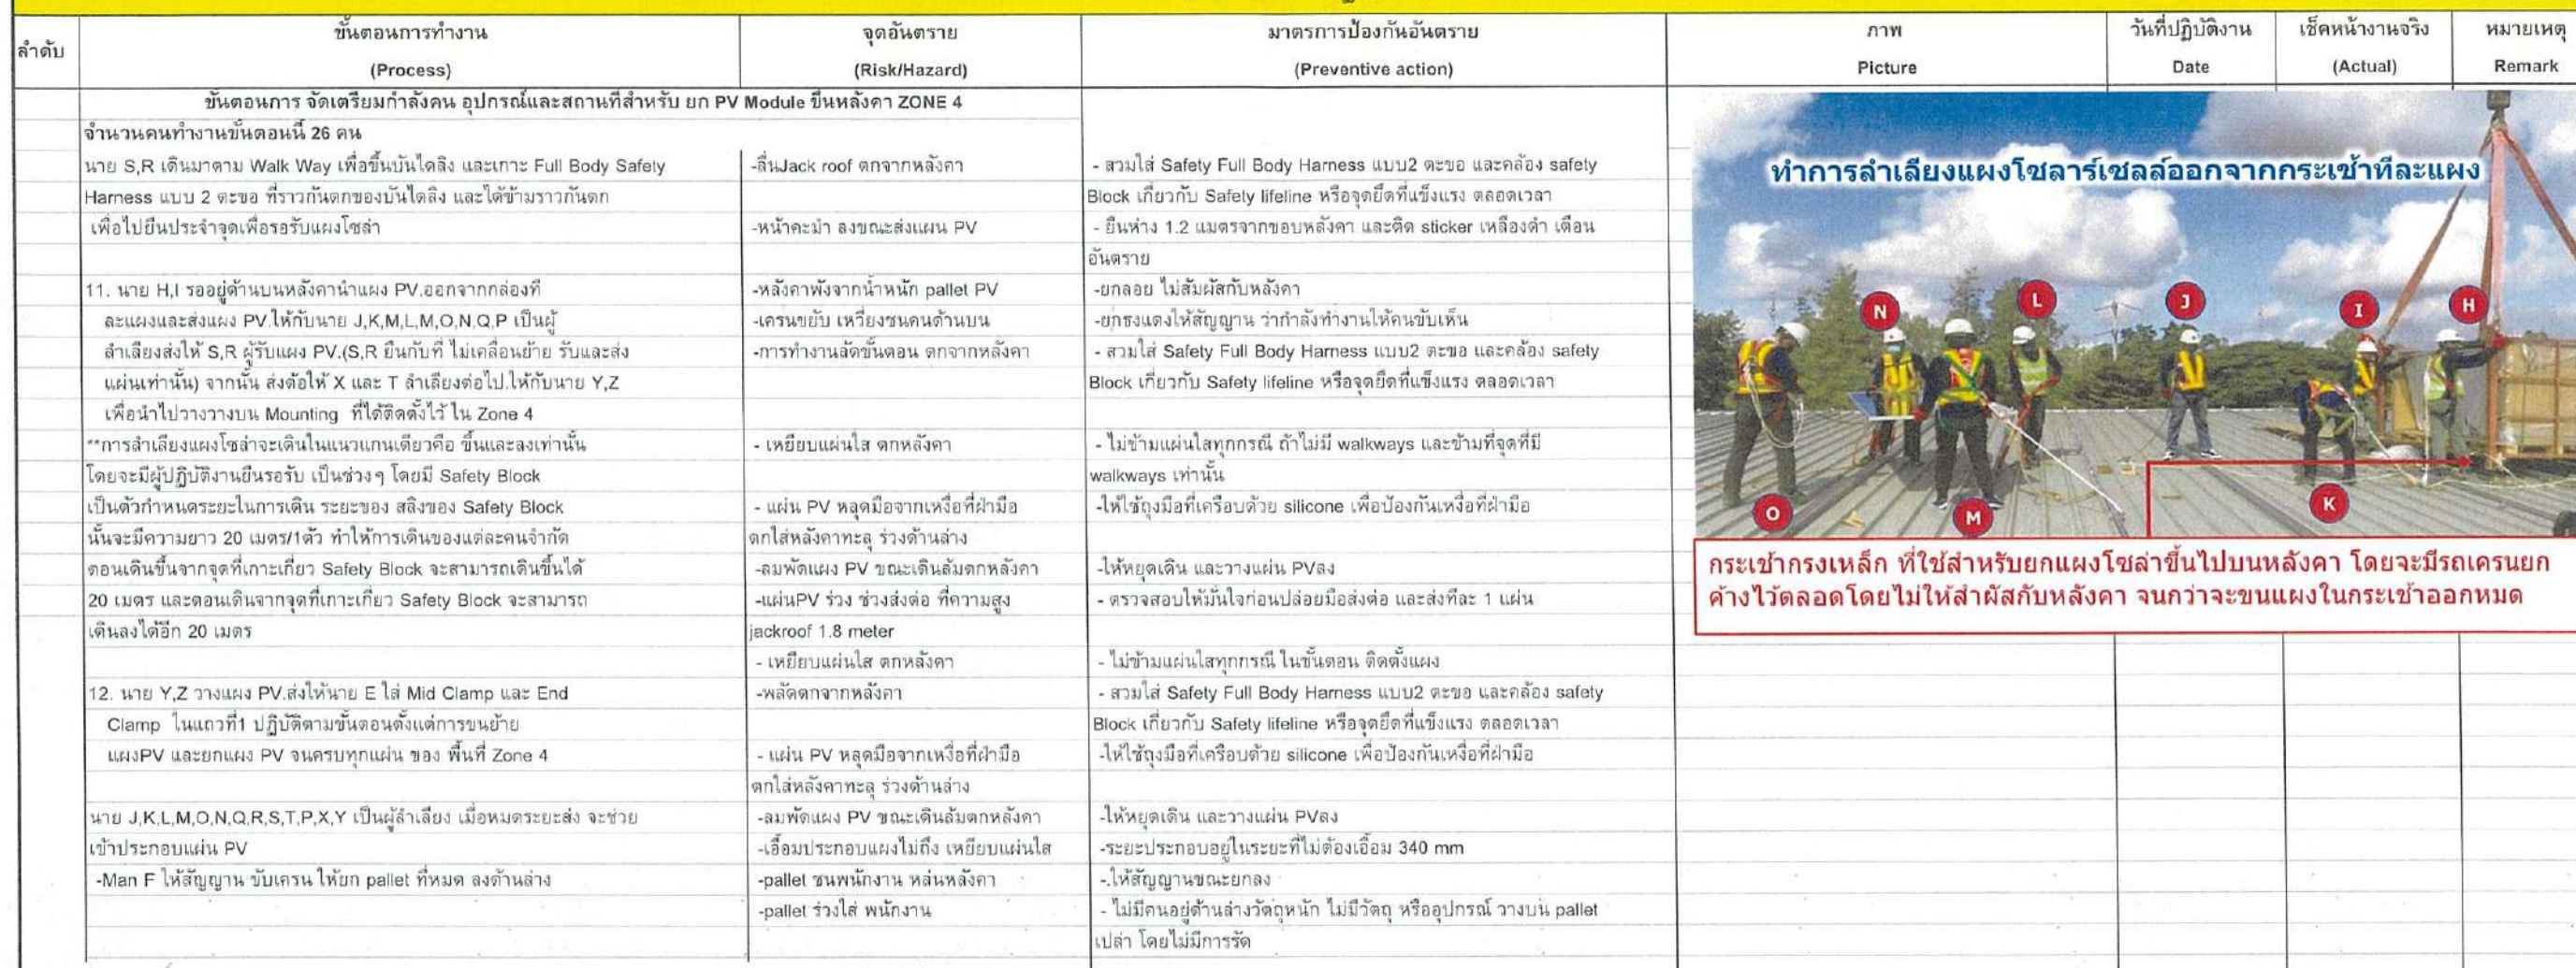 ลำดับ
ขั้นตอนการทำงาน
(Process)
จุดอันตราย
(Risk/Hazard)
มาตรการป้องกันอันตราย
(Preventive action)
ภาพ
Picture
วันที่ปฏิบัติงาน
Date
เช็คหน้างานจริง
(Actual)
หมายเหตุ
Remark
ขั้นตอนการ จัดเตรียมกำลังคน อุปกรณ์และสถานที่สำหรับ ยก PV Module ขึ้นหลังคา ZONE 4
จำนวนคนทำงานขั้นตอนนี้ 26 คน
นาย S,R เดินมาตาม Walk Way เพื่อขึ้นบันไดลิง และเกาะ Full Body Safety
-ลื่นJack roof ตกจากหลังคา
- สวมใส่ Safety Full Body Harness แบบ2 ตะขอ และคล้อง safety
Harness แบบ 2 ตะขอ ที่ราวกันตกของบันไดลิง และได้ข้ามราวกันตก
Block เกี่ยวกับ Safety lifeline หรือจุดยึดที่แข็งแรง ตลอดเวลา
เพื่อไปยืนประจำจุดเพื่อรอรับแผงโซล่า
-หน้าคะมำ ลงขณะส่งแผน PV
- ยืนห่าง 1.2 แมตรจากขอบหลังคา และติด sticker เหลืองดำ เตือน
อันตราย
11. นาย H,I รออยู่ด้านบนหลังคานำแผง PV.ออกจากกล่องที
-หลังคาพังจากน้ำหนัก pallet PV
-ยกลอย ไม่สัมผัสกับหลังคา
ละแผงและส่งแผง PV.ให้กับนาย J,K,M,L,M,O,N,Q,P เป็นผู้
-เครนขยับ เหวี่ยงชนคนด้านบน
-ยกธงแดงให้สัญญาน ว่ากำลังทำงานให้คนขับเห็น
ลำเลียงส่งให้ S,R ผู้รับแผง PV.(S,R ยืนกับที่ ไม่เคลื่อนย้าย รับและส่ง
-การทำงานลัดขั้นตอน ตกจากหลังคา
- สวมใส่ Safety Full Body Harness แบบ2 ตะขอ และคล้อง safety
แผ่นเท่านั้น) จากนั้น ส่งต่อให้ X และ T ลำเลียงต่อไป.ให้กับนาย Y,Z
Block เกี่ยวกับ Safety lifeline หรือจุดยึดที่แข็งแรง ตลอดเวลา
เพื่อนำไปวางวางบน Mounting ที่ได้ติดตั้งไว้ ใน Zone 4
**การลำเลียงแผงโซล่าจะเดินในแนวแกนเดียวคือ ขึ้นและลงเท่านั้น
- เหยียบแผ่นใส ตกหลังคา
- ไม่ข้ามแผ่นใสทุกกรณี ถ้าไม่มี walkways และข้ามที่จุดที่มี
โดยจะมีผู้ปฏิบัติงานยืนรอรับ เป็นช่วงๆ โดยมี Safety Block
walkways เท่านั้น
เป็นตัวกำหนดระยะในการเดิน ระยะของ สลิงของ Safety Block
- แผ่น PV หลุดมือจากเหงื่อที่ฝ่ามือ
-ให้ใช้ถุงมือที่เครือบด้วย silicone เพื่อป้องกันเหงื่อที่ฝ่ามือ
นั้นจะมีความยาว 20 เมตร/1ตัว ทำให้การเดินของแต่ละคนจำกัด
ตกใส่หลังคาทะลุ ร่วงด้านล่าง
ตอนเดินขึ้นจากจุดที่เกาะเกี่ยว Safety Block จะสามารถเดินขึ้นได้
-ลมพัดแผง PV ขณะเดินล้มตกหลังคา
-ให้หยุดเดิน และวางแผ่น PVลง
20 เมตร และตอนเดินจากจุดที่เกาะเกี่ยว Safety Block จะสามารถ
-แผ่นPV ร่วง ช่วงส่งต่อ ที่ความสูง
- ตรวจสอบให้มั่นใจก่อนปล่อยมือส่งต่อ และส่งทีละ 1 แผ่น
เดินลงได้อีก 20 เมตร
jackroof 1.8 meter
- เหยียบแผ่นใส ตกหลังคา
- ไม่ข้ามแผ่นใสทุกกรณี ในขั้นตอน ติดตั้งแผง
12. นาย Y,Z วางแผง PV.ส่งให้นาย E ใส่ Mid Clamp และ End
-พลัดตกจากหลังคา
- สวมใส่ Safety Full Body Harness แบบ2 ตะขอ และคล้อง safety
Clamp ในแถวที่1 ปฏิบัติตามขั้นตอนตั้งแต่การขนย้าย
Block เกี่ยวกับ Safety lifeline หรือจุดยึดที่แข็งแรง ตลอดเวลา
แผงPV และยกแผง PV จนครบทุกแผ่น ของ พื้นที่ Zone 4
- แผ่น PV หลุดมือจากเหงื่อที่ฝ่ามือ
-ให้ใช้ถุงมือที่เครือบด้วย silicone เพื่อป้องกันเหงื่อที่ฝ่ามือ
ตกใส่หลังคาทะลุ ร่วงด้านล่าง
นาย J,K,L,M,O,N,Q,R,S,T,P,X,Y เป็นผู้ลำเลียง เมื่อหมดระยะส่ง จะช่วย
-ลมพัดแผง PV ขณะเดินล้มตกหลังคา
-ให้หยุดเดิน และวางแผ่น PVลง
เข้าประกอบแผ่น PV
-เอื้อมประกอบแผงไม่ถึง เหยียบแผ่นใส
-ระยะประกอบอยู่ในระยะที่ไม่ต้องเอื้อม 340 mm
-Man F ให้สัญญาน ขับเครน ให้ยก pallet ที่หมด ลงด้านล่าง
-pallet ชนพนักงาน หล่นหลังคา
-.ให้สัญญานขณะยกลง
-pallet ร่วงใส่ พนักงาน
- ไม่มีคนอยู่ด้านล่างวัตถุหนัก ไม่มีวัตถุ หรืออุปกรณ์ วางบน pallet
เปล่า โดยไม่มีการรัด
ทำการลำเลียงแผงโซลาร์เซลล์ออกจากกระเช้าทีละแผง
N
L
J
I
H
O
M
K
กระเช้ากรงเหล็ก ที่ใช้สำหรับยกแผงโซล่าขึ้นไปบนหลังคา โดยจะมีรถเครนยก
ค้างไว้ตลอดโดยไม่ให้สำผัสกับหลังคา จนกว่าจะขนแผงในกระเช้าออกหมด